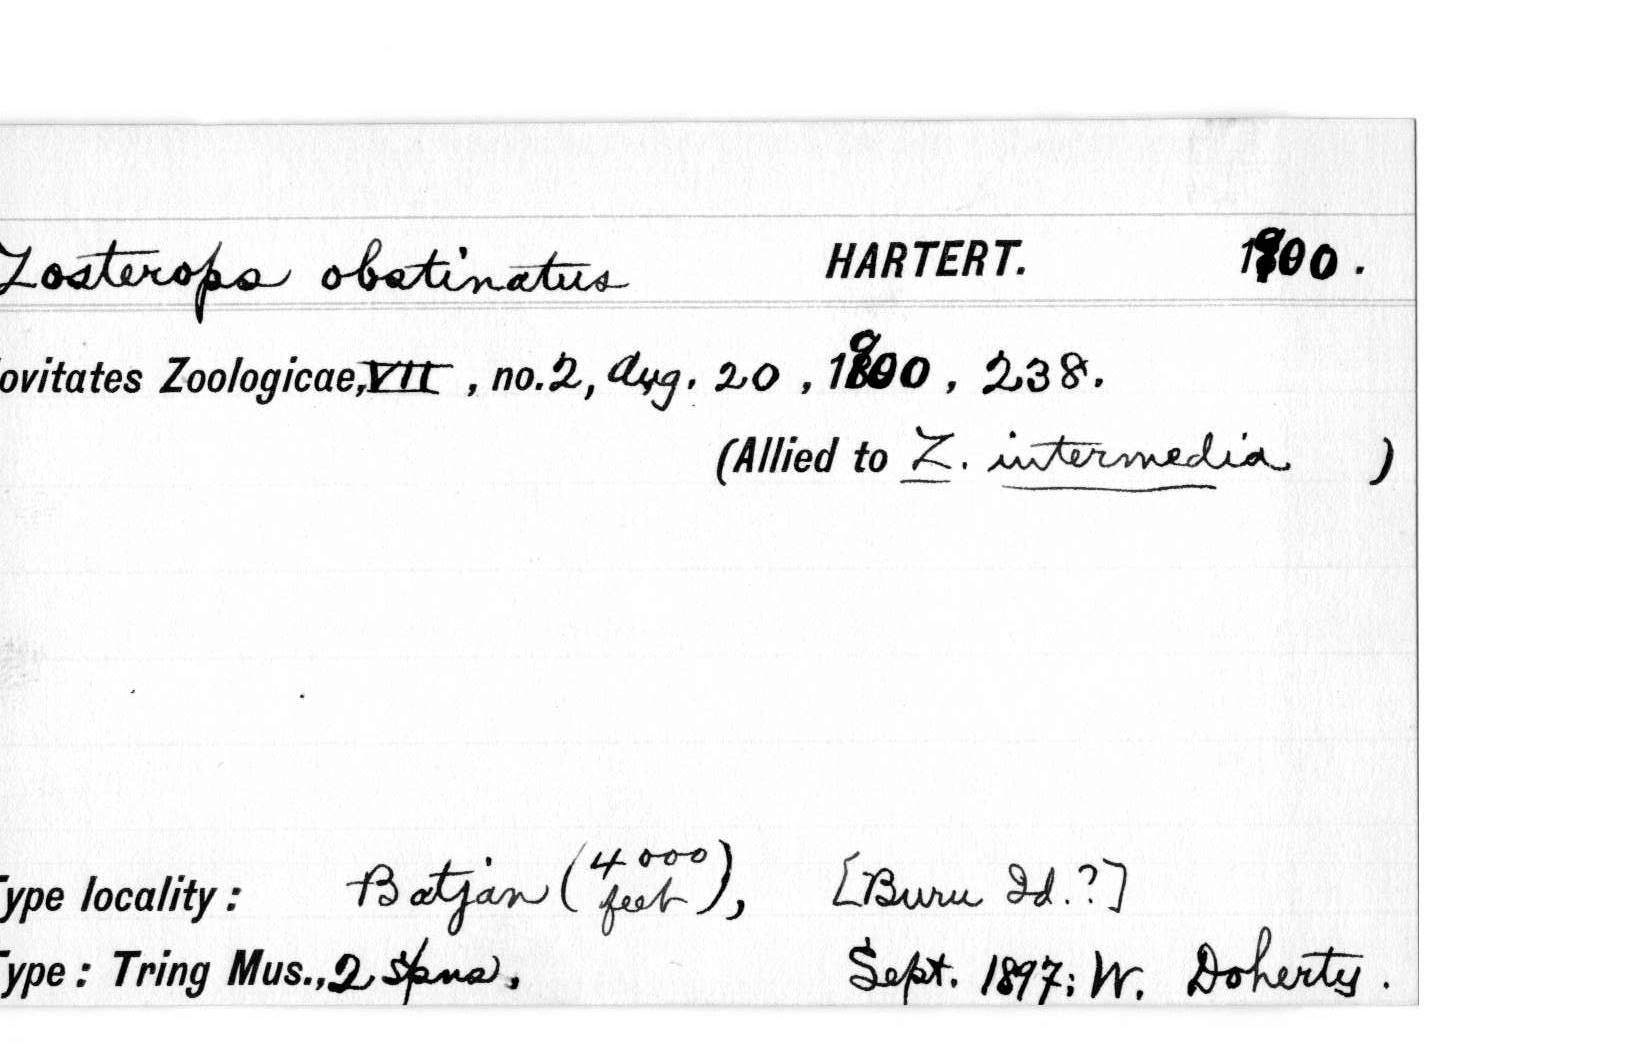 Zosterops obstinatus HARTERT. 1900.
ovitates Zoologicae, VII, no. 2, Aug. 20, 1900, 238.
(Allied to Z. intermedia )
ype locality: Batjan (4000 feet), [Buru Id.?]
ype: Tring Mus., 2 spns, Sept. 1897; W. Doherty.